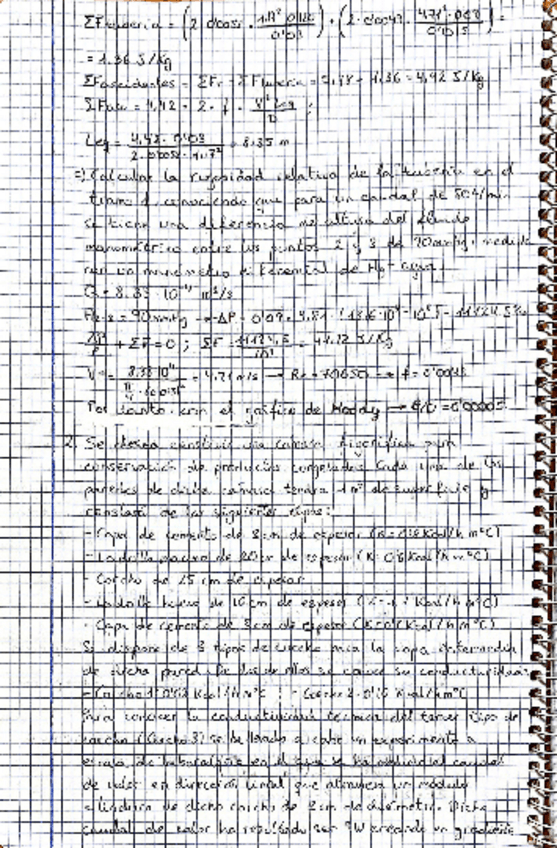 ΣFtubería = (2·0'0051 · 1'17²·0'120 / 0'03) + (2·0'0043 · 4'71²·0'08 / 0'015) =
= 1.36 J/Kg
ΣFaccidentes = ΣFt - ΣFtubería = - 1,36 = 4,42 J/Kg
ΣFacc = 4,42 = 2 · f · V² Leq / D ;
Leq = 4,42 · 0'03 / 2 · 0'0051 · 1,17² = 8,35 m
Calcular la rugosidad relativa de la tubería en el
tramo conociendo que para un caudal de 50 l/min
se tiene una diferencia de altura del fluido
manométrico entre los puntos 2 y 3 de 90mmHg, medida
con un manómetro diferencial de Hg - agua.
Q = 8.33 · 10⁻⁴ m³/s
= 90mmHg → ΔP = 0'09 · 9,81 · (13'6·10³ - 10³) = 11124,5 Pa
ΔP/ρ + ΣF = 0 ; ΣF = 11124,5 / 10³ = 11,12 J/Kg
V = 8,33·10⁻⁴ / π/4 · 0'015² = 4,71 m/s → Re = 70650 → f = 0'0043
Por tanto, con el gráfico de Moody → ε/D = 0'00005
2. Se desea construir una cámara frigorífica para
conservación de productos congelados. Cada una de las
paredes de dicha cámara tendrá 1 m² de superficie y
constará de las siguientes capas:
- Capa de cemento de 2cm de espesor (K = 0'8 Kcal/h m ºC)
- Ladrillo macizo de 20cm de espesor (K = 0'6 Kcal/h m ºC)
- Corcho de 15 cm de espesor
- Ladrillo hueco de 10cm de espesor ( Kcal/h m ºC)
- Capa de cemento de 2cm de espesor ( Kcal/h m ºC)
Se dispone de 3 tipos de corcho para la capa intermedia
de dicha pared. De dos de ellos se conoce su conductividad:
- Corcho 1: 0'03 Kcal/h m ºC ; - Corcho 2: Kcal/h m ºC
Para conocer la conductividad térmica del tercer tipo de
corcho (Corcho 3) se ha llevado a cabo un experimento a
escala de laboratorio en el que se ha medido el caudal
de calor en dirección axial que atraviesa un módulo
cilíndrico de dicho corcho de 2cm de diámetro. Dicho
caudal de calor ha resultado ser W creando un gradiente